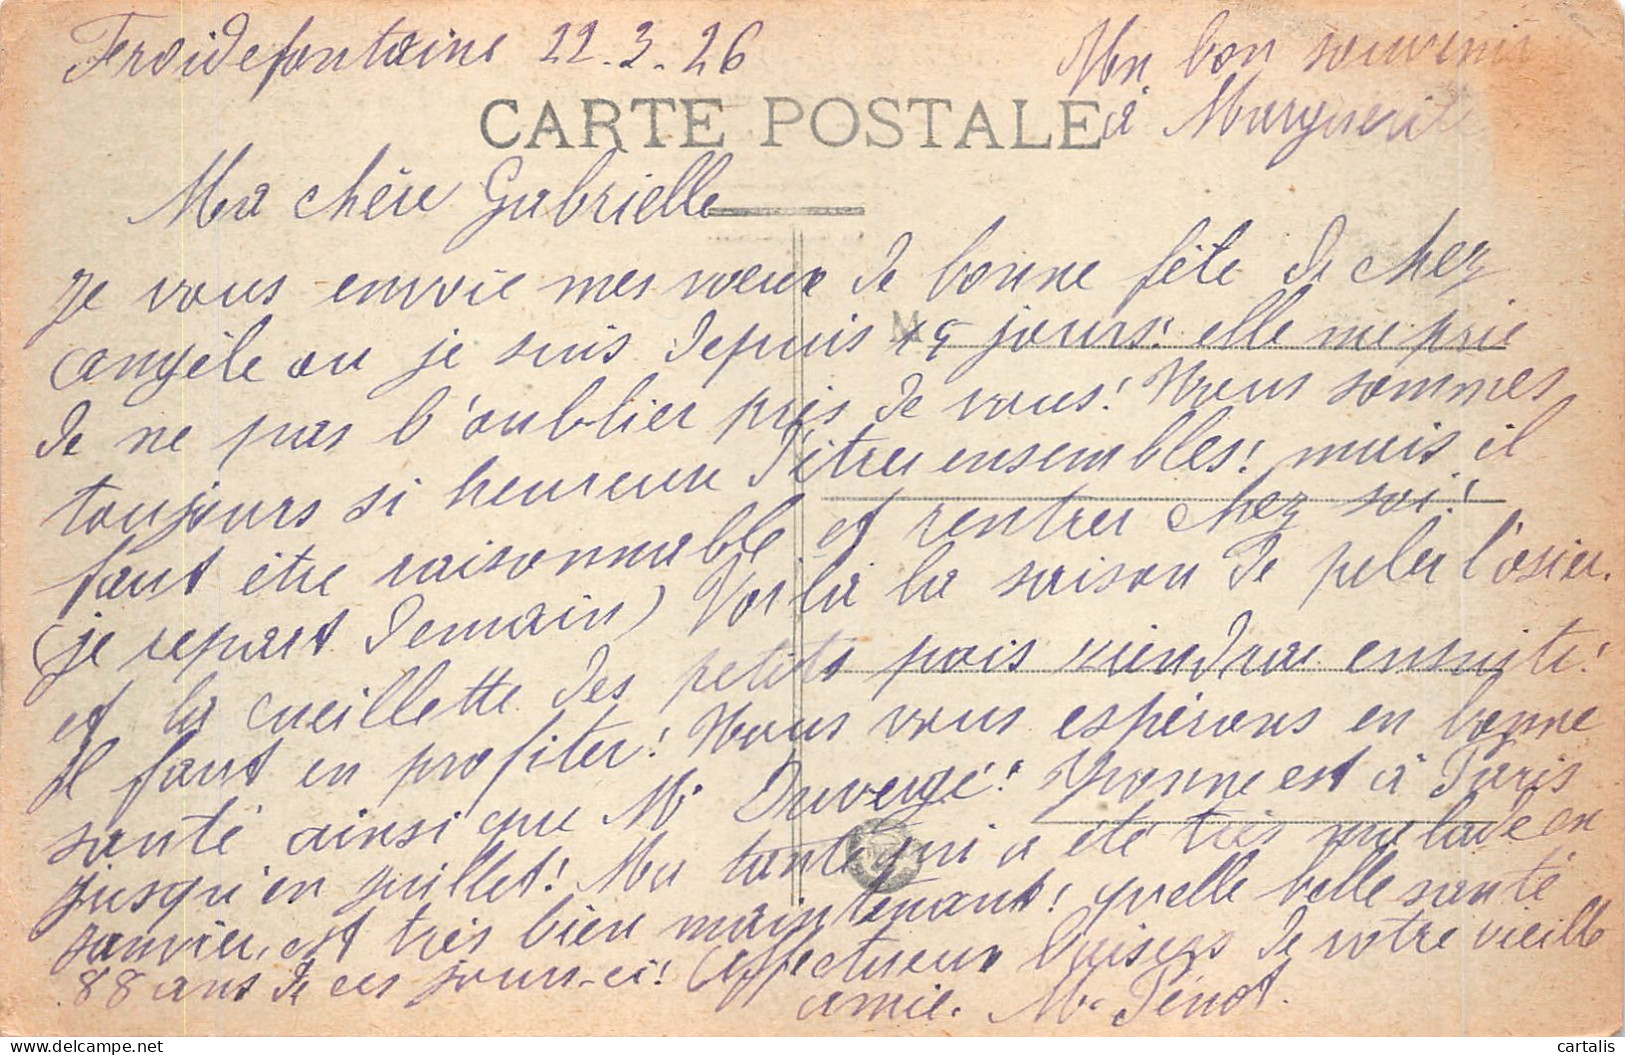 Froidefontaine 22.3.26
Mon bon souvenir
à Marguerite
CARTE POSTALE
Ma chère Gabrielle
Je vous envoie mes voeux de bonne fête de chez
Angèle ou je suis depuis 15 jours! elle me prie
de ne pas l'oublier près de vous! Nous sommes
toujours si heureux d'être ensembles! mais il
faut être raisonnable et rentrer chez soi!
(je repart demain) Voilà la saison de peler l'osier.
et la cueillette des petits pois viendra ensuite!
Il faut en profiter! Nous vous espérons en bonne
santé ainsi que Mr Duvergé! Yvonne est à Paris
jusqu'en juillet! Ma tante qui a été très malade en
janvier, est très bien maintenant! quelle belle santé
88 ans de ces jours-ci! Affectueux baisers de votre vieille
amie. M. Penot.
cartalis
delcampe.net